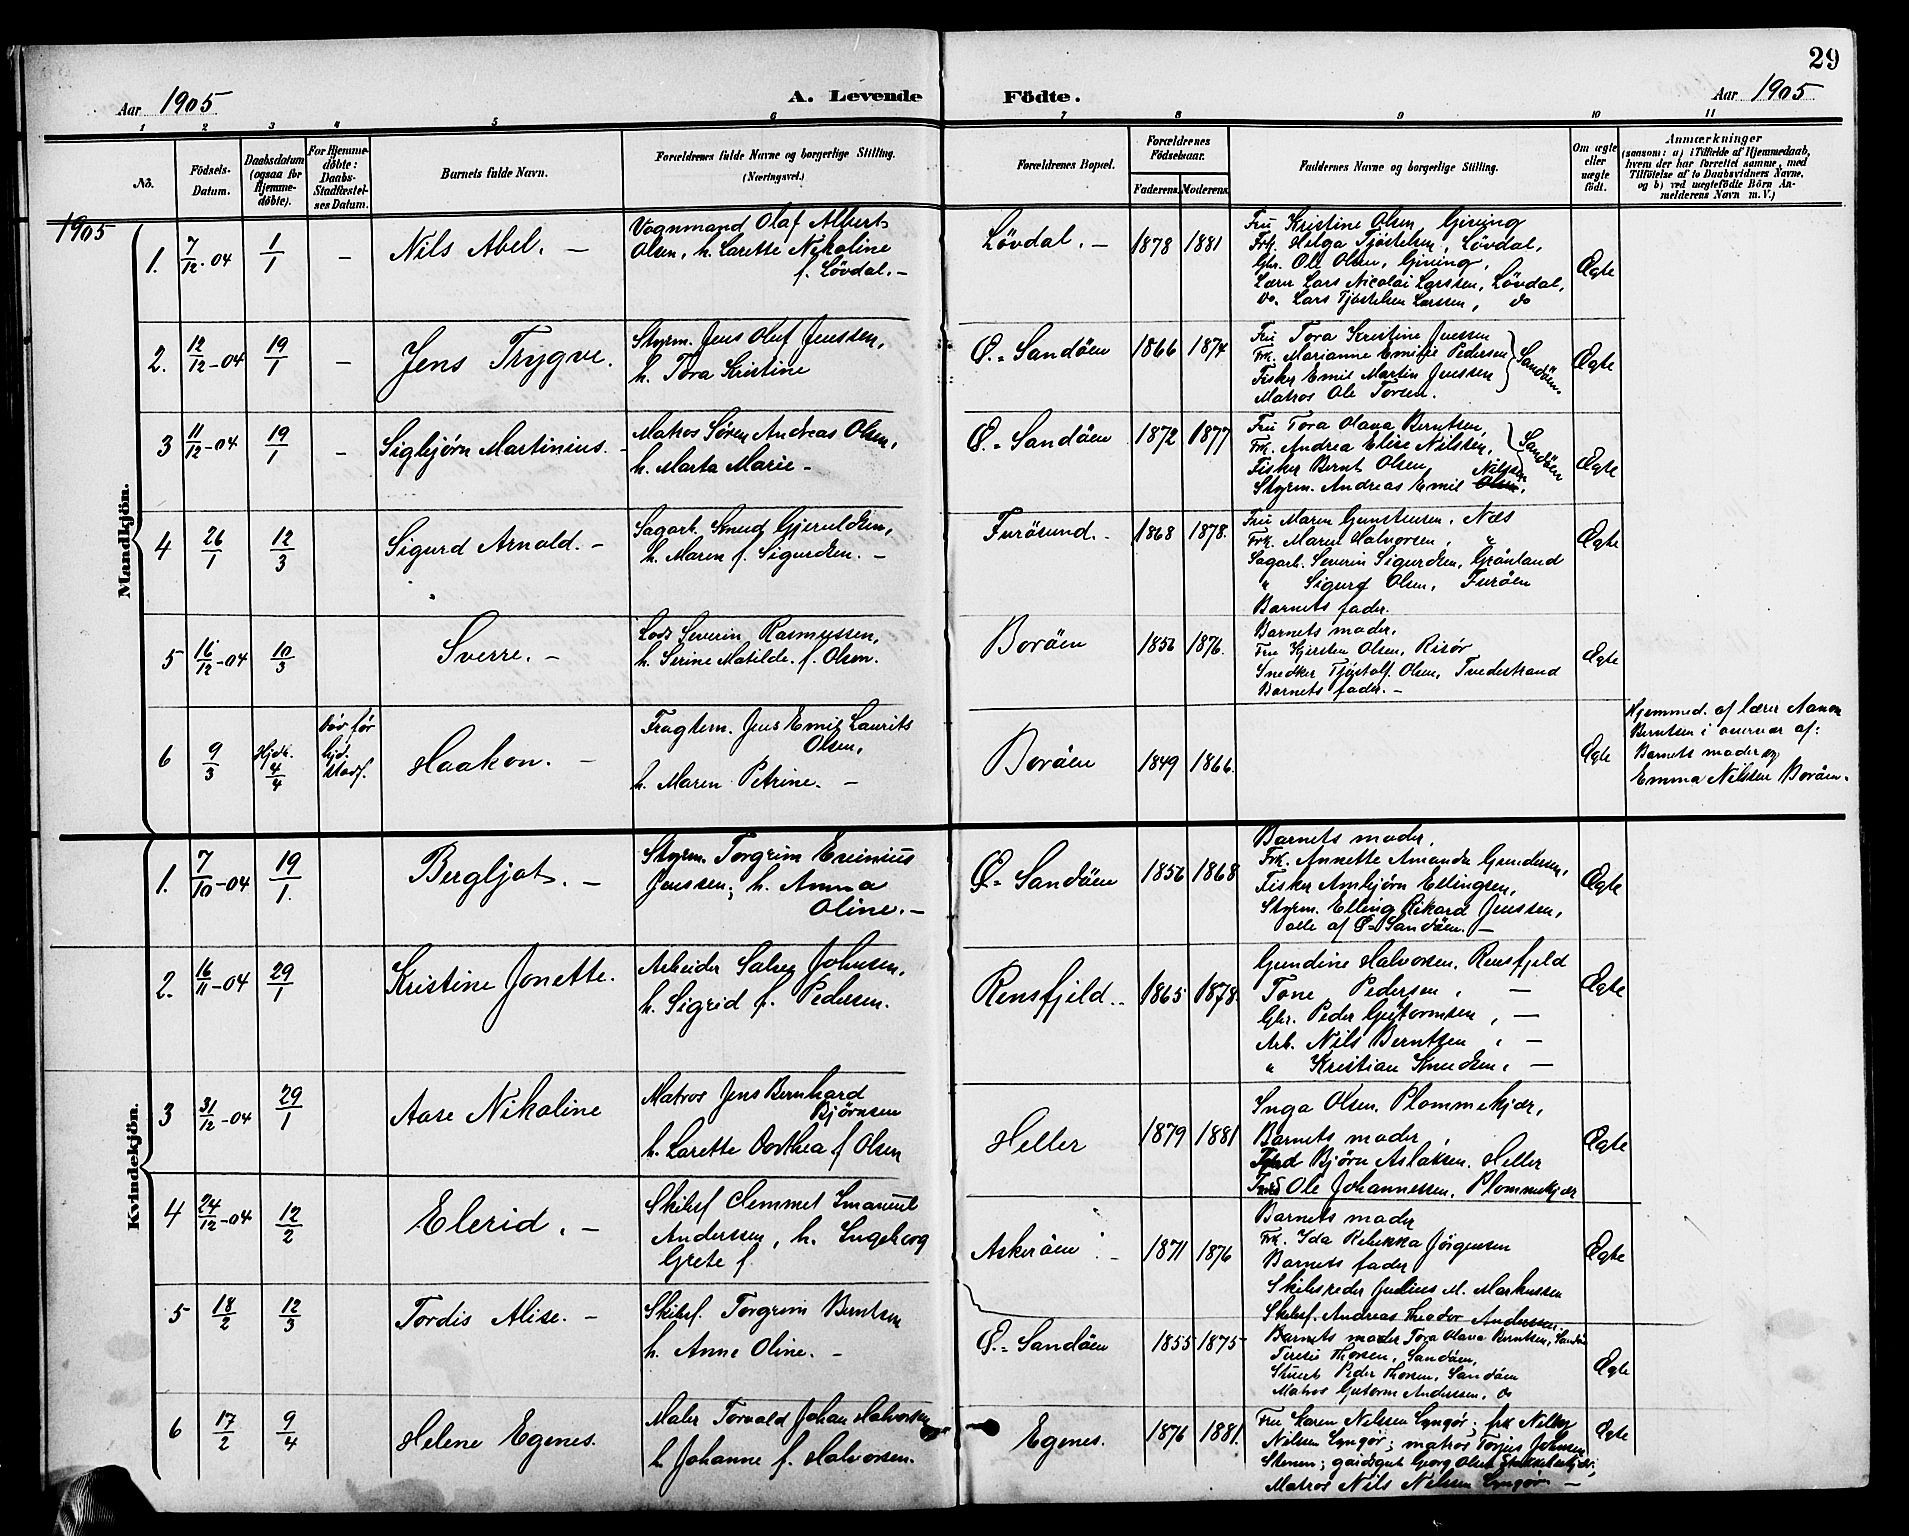 29
Aar 1905
A. Levende Fødte.
Aar 1905
1 2 3 4 5 6 7 8 9 10 11
No.
Fødsels-
Datum.
Daabsdatum
(ogsaa for
Hjemme-
döbte).
For Hjemme-
döbte:
Daabs-
Stadfæstel-
ses Datum.
Barnets fulde Navn.
Forældrenes fulde Navne og borgerlige Stilling.
(Næringsvei.)
Forældrenes Bopæl.
Forældrenes
Födselsaar.
Faderens. Moderens.
Faddernes Navne og borgerlige Stilling.
Om ægte
eller
uægte
født.
Anmærkninger
(saasom: a) i Tilfælde af Hjemmedaab,
hvem der har forrettet samme, med
Tilföielse af to Daabsvidners Navne,
og b) ved uægtefödte Börn An-
melderens Navn m. V.)
1905
Mandkjön.
1. 7/12-04 1/1 - Nils Abel. -
Vognmand Olaf Albert
Olsen, h. Larette Nikoline
f. Lövdal. -
Lövdal. - 1878 1881
Fru Kristine Olsen Giving
Frk. Helga Tjöstelsen, Lövdal,
Gbr. Ole Olsen, Giving,
Lærer Lars Nicolai Larssen, Lövdal,
Do. Lars Tjöstelsen Larssen, do
Ægte
2. 12/12-04 19/1 - Jens Trygve.
Styrm. Jens Oluf Jenssen,
h. Tora Kristine
Ø.= Sandöen 1866 1874
Fru Tora Kristine Jenssen
Frk. Marianne Emilie Pedersen
Fisker Emil Martin Jenssen
Matros Ole Torsen.
Sandöen.
Ægte
3 11/12-04 19/1 - Sigbjørn Martinius. -
Matros Søren Andreas Olsen,
h. Marta Marie -
Ø.- Sandöen 1872 1877
Fru Tora Olava Berntsen,
Frk. Andrea Elise Nilssen,
Fisker Bernt Olsen
Styrm. Andreas Emil Olsen, Nilssen
Sandöen
Ægte
4 26/1 12/3 Sigurd Arnold. -
Sagarb. Knud Gjeruldsen,
h. Maren f. Sigurdsen. -
Furösund. - 1868 1878.
Fru Maren Gunstensen, Næs
Frk. Maren Halvorsen, "
Sagarb. Severin Sigurdsen, Grönland
" Sigurd Olsen, Furöen
Barnets fader.
Ægte
5 16/12-04 10/3 Sverre. -
Lods Severin Rasmussen,
h. Serine Matilde. f. Olsen.
Boröen 1856 1876.
Barnets moder,
Fru Kirsten Olsen, Risør
Snedker Tjöstolf Olsen, Tvedestrand
Barnets fader. -
Ægte
6 9/3 Hjd. 4/4 Död før
Hjd.
stadf.
Haakon. -
Fragtem. Jens Emil Laurits
Olsen,
h. Maren Petrine. -
Boröen 1849 1866.
Ægte
Hjemmed. af lærer Aanon
Berntsen i overvær af:
Barnets moder og
Emma Nilsen Boröen.
Kvindekjön.
1. 7/10-04 19/1. Bergljot. -
Styrm. Torgrim Ereinius
Jenssen; h. Anna
Oline. -
Ø.= Sandöen 1856 1868
Barnets moder,
Frk. Annette Amanda Gundersen,
Fisker Arnbjørn Ellingsen,
Styrm. Elling Rikard Jenssen,
alle af Ø= Sandöen. -
Ægte
2. 16/11-04 29/1 Kristine Jonette.
Arbeider Salve Johnsen,
h. Sigrid f. Pedersen.
Rensfjeld. - 1865 1878.
Gundine Halvorsen, Rensfjeld
Tone Pedersen, -
Gbr. Peder Guttormsen, -
Arb. Nils Berntsen, -
" Kristian Knudsen, -
Ægte
3 31/12-04 29/1 Aase Nikoline
Matros Jens Bernhard
Bjørnsen
h. Larette Dorthea f Olsen
Heller 1879 1881
Inga Olsen, Plommekjær,
Barnets moder,
Bjørn Aslaksen, Heller
Ole Johannessen, Plommekjær
Ægte
4 24/12-04 12/2 Elerid. -
Skibsf Clemmet Imanuel
Anderssen, h. Ingeborg
Grete f.
Askeröen. - 1871 1876
Barnets moder
Frk. Ida Rebekka Jörgensen
Barnets fader
Skibsreder Julius M. Markussen
Skibsf. Andreas Theodor Anderssen.
Ægte
5 18/2 12/3 Tordis Alise. -
Skibsf. Torgrim Berntsen
h. Anne Oline. -
Ø.= Sandöen 1855 1875
Barnets moder Tora Olava Berntsen, Sandö
Terese Thorsen, Sandöen,
Peder Thorsen, Sandöen
Matros Gutorm Andersen, do
Ægte
6 17/2 9/4 Helene Egenes.
Maler Torvald Johan Halvorsen
h Johanne f. Halvorsen.
Egenes. 1876 1881.
Fru Karen Nilssen Lyngør; frk
Nilssen Lyngør; matros Torjus Johnsen
Stenen; gaardgut Georg Olsen
Matros Nils Nilssen Lyngør -
Ægte